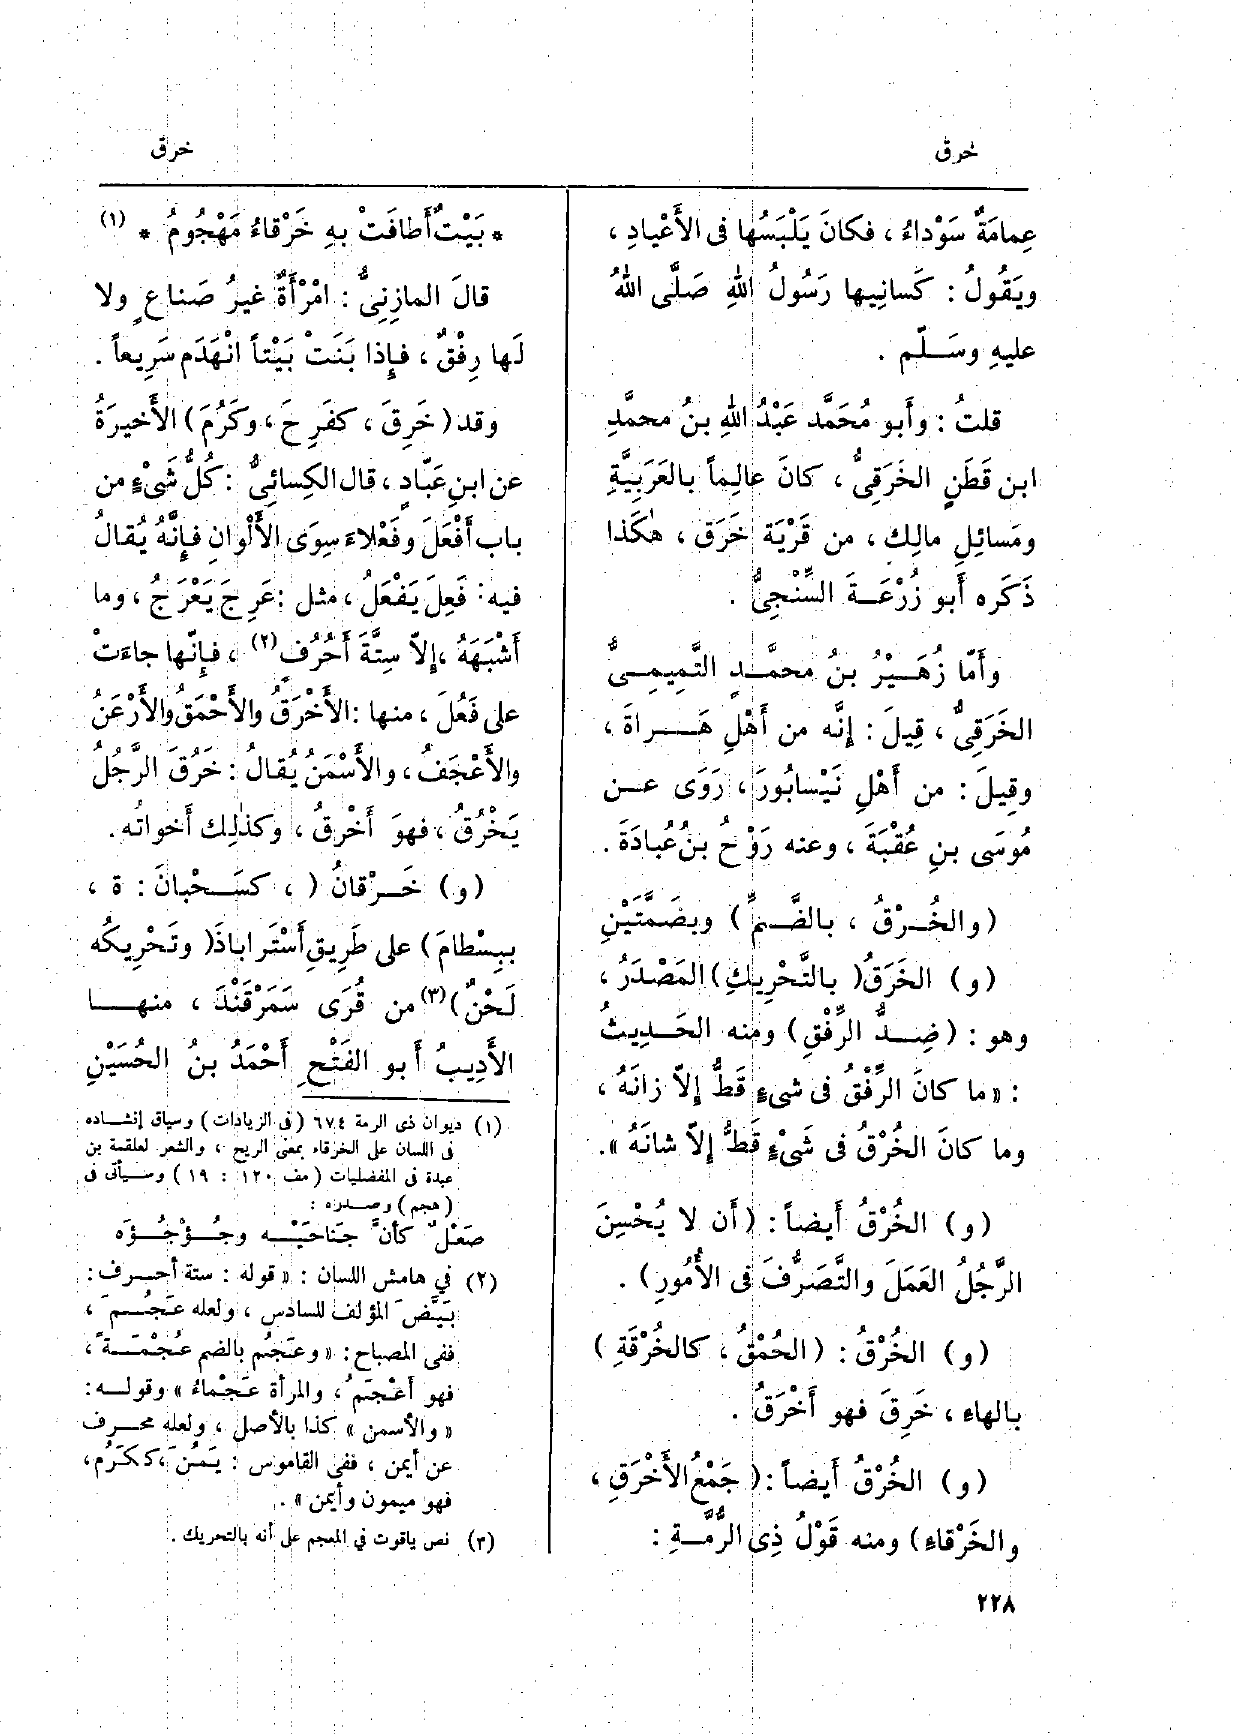 خرق
خرق
عِمامَةٌ سَوْداءُ ، فكانَ يَلْبَسُها فى الأَعْيادِ ،
ويَقُولُ : كَسانِيها رَسُولُ اللهِ صَلَّى اللهُ
عليهِ وسَلّم .
قلتُ : وأَبو مُحَمَّد عَبْدُ اللهِ بنُ محمَّدِ
ابن قَطَنٍ الخَرَقِىُّ ، كانَ عالِماً بالعَرَبِيَّةِ
ومَسائِلِ مالِك ، من قَرْيَة خَرَق ، هٰكَذا
ذَكَره أَبو زُرْعَةَ السِّنْجِىُّ .
وأَمّا زُهَيْرُ بنُ محمَّدٍ التَّمِيمِىُّ
الخَرَقِىُّ ، قِيلَ : إِنَّه من أَهْلِ هَراةَ ،
وقِيلَ : من أَهْلِ نَيْسابُورَ ، رَوَى عن
مُوسَى بنِ عُقْبَةَ ، وعنه رَوْحُ بنُ عُبادَةَ .
(والخُرْقُ ، بالضَّمِّ) وبضَمَّتَيْنِ
(و) الخَرَقُ( بالتَّحْرِيكِ) المَصْدَرُ ،
وهو : (ضِدُّ الرِّفْقِ) ومنه الحَدِيثُ
: « ما كانَ الرِّفْقُ فى شىءٍ قَطُّ إِلاّ زانَهُ ،
وما كانَ الخُرْقُ فى شَىْءٍ قَطُّ إِلاّ شانَهُ ».
(و) الخُرْقُ أَيضاً : (أَن لا يُحْسِنَ
الرَّجُلُ العَمَلَ والتَّصَرُّفَ فى الأُمُورِ) .
(و) الخُرْقُ : (الحُمْقُ ، كالخُرْقَةِ)
بالهاء ، خَرِقَ فهو أَخْرَقُ .
(و) الخُرْقُ أَيضاً :( جَمْعُ الأَخْرَقِ ،
والخَرْقاءِ) ومنه قَوْلُ ذِى الرُّمَّةِ :
* بَيْتٌ أَطافَتْ بهِ خَرْقاءُ مَهْجُومُ * (١)
قالَ المازِنِىُّ : امْرَأَةٌ غيرُ صَناعٍ ولا
لَها رِفْقٌ ، فإِذا بَنَتْ بَيْتاً انْهَدَم سَرِيعاً .
وقد (خَرِقَ ، كفَرِحَ ، وكَرُمَ) الأَخيرَةُ
عن ابنِ عَبّادٍ ، قال الكِسائِىُّ : كُلُّ شَىْءٍ من
باب أَفْعَلَ وفَعْلاءَ سِوَى الأَلْوانِ فإِنَّهُ يُقالُ
فيه : فَعِلَ يَفْعَلُ ، مثل : عَرِجَ يَعْرَجُ ، وما
أَشْبَهَهُ ، إِلاّ سِتَّةَ أَحْرُفٍ (٢) ، فإِنَّها جاءَتْ
على فَعُلَ ، منها : الأَخْرَقُ والأَحْمَقُ والأَرْعَنُ
والأَعْجَفُ ، والأَسْمَنُ يُقالُ : خَرُقَ الرَّجُلُ
يَخْرُقُ ، فهوَ أَخْرقُ ، وكذٰلِك أَخواتُه .
(و) خَرْقانُ ( ، كسَحْبانَ : ة ،
ببِسْطامَ) على طَرِيقِ أَسْتَراباذَ( وتَحْرِيكُه
لَحْنٌ) (٣) من قُرَى سَمَرْقَنْدَ ، منها
الأَدِيبُ أَبو الفَتْحِ أَحْمَدُ بنُ الحُسَيْنِ
(١) ديوان ذى الرمة ٦٧٤ (فى الزيادات) وسياق إنشاده
فى اللسان على الخرقاء بمعنى الريح ، والشعر لعلقمة بن
عبدة فى المفضليات (مف ١٢٠ : ١٩) وسيأتى فى
(هجم) وصدره :
صَعْلٌ كأنَّ جَناحَيْه وجُؤْجُؤَه
(٢) في هامش اللسان : « قوله : ستة أحرف :
بَيَّضَ المؤلف للسادس ، ولعله عَجُم ،
ففى المصباح : « وعَجُم بالضم عُجْمَةً ،
فهو أعْجَمُ ، والمرأة عَجْماءُ » وقوله :
« والأسمن » كذا بالأصل ، ولعله محرف
عن أيمن ، ففى القاموس : يَمُنَ ، ككَرُم ،
فهو ميمون وأيمن » .
(٣) نص ياقوت في المعجم على أنه بالتحريك .
٢٢٨